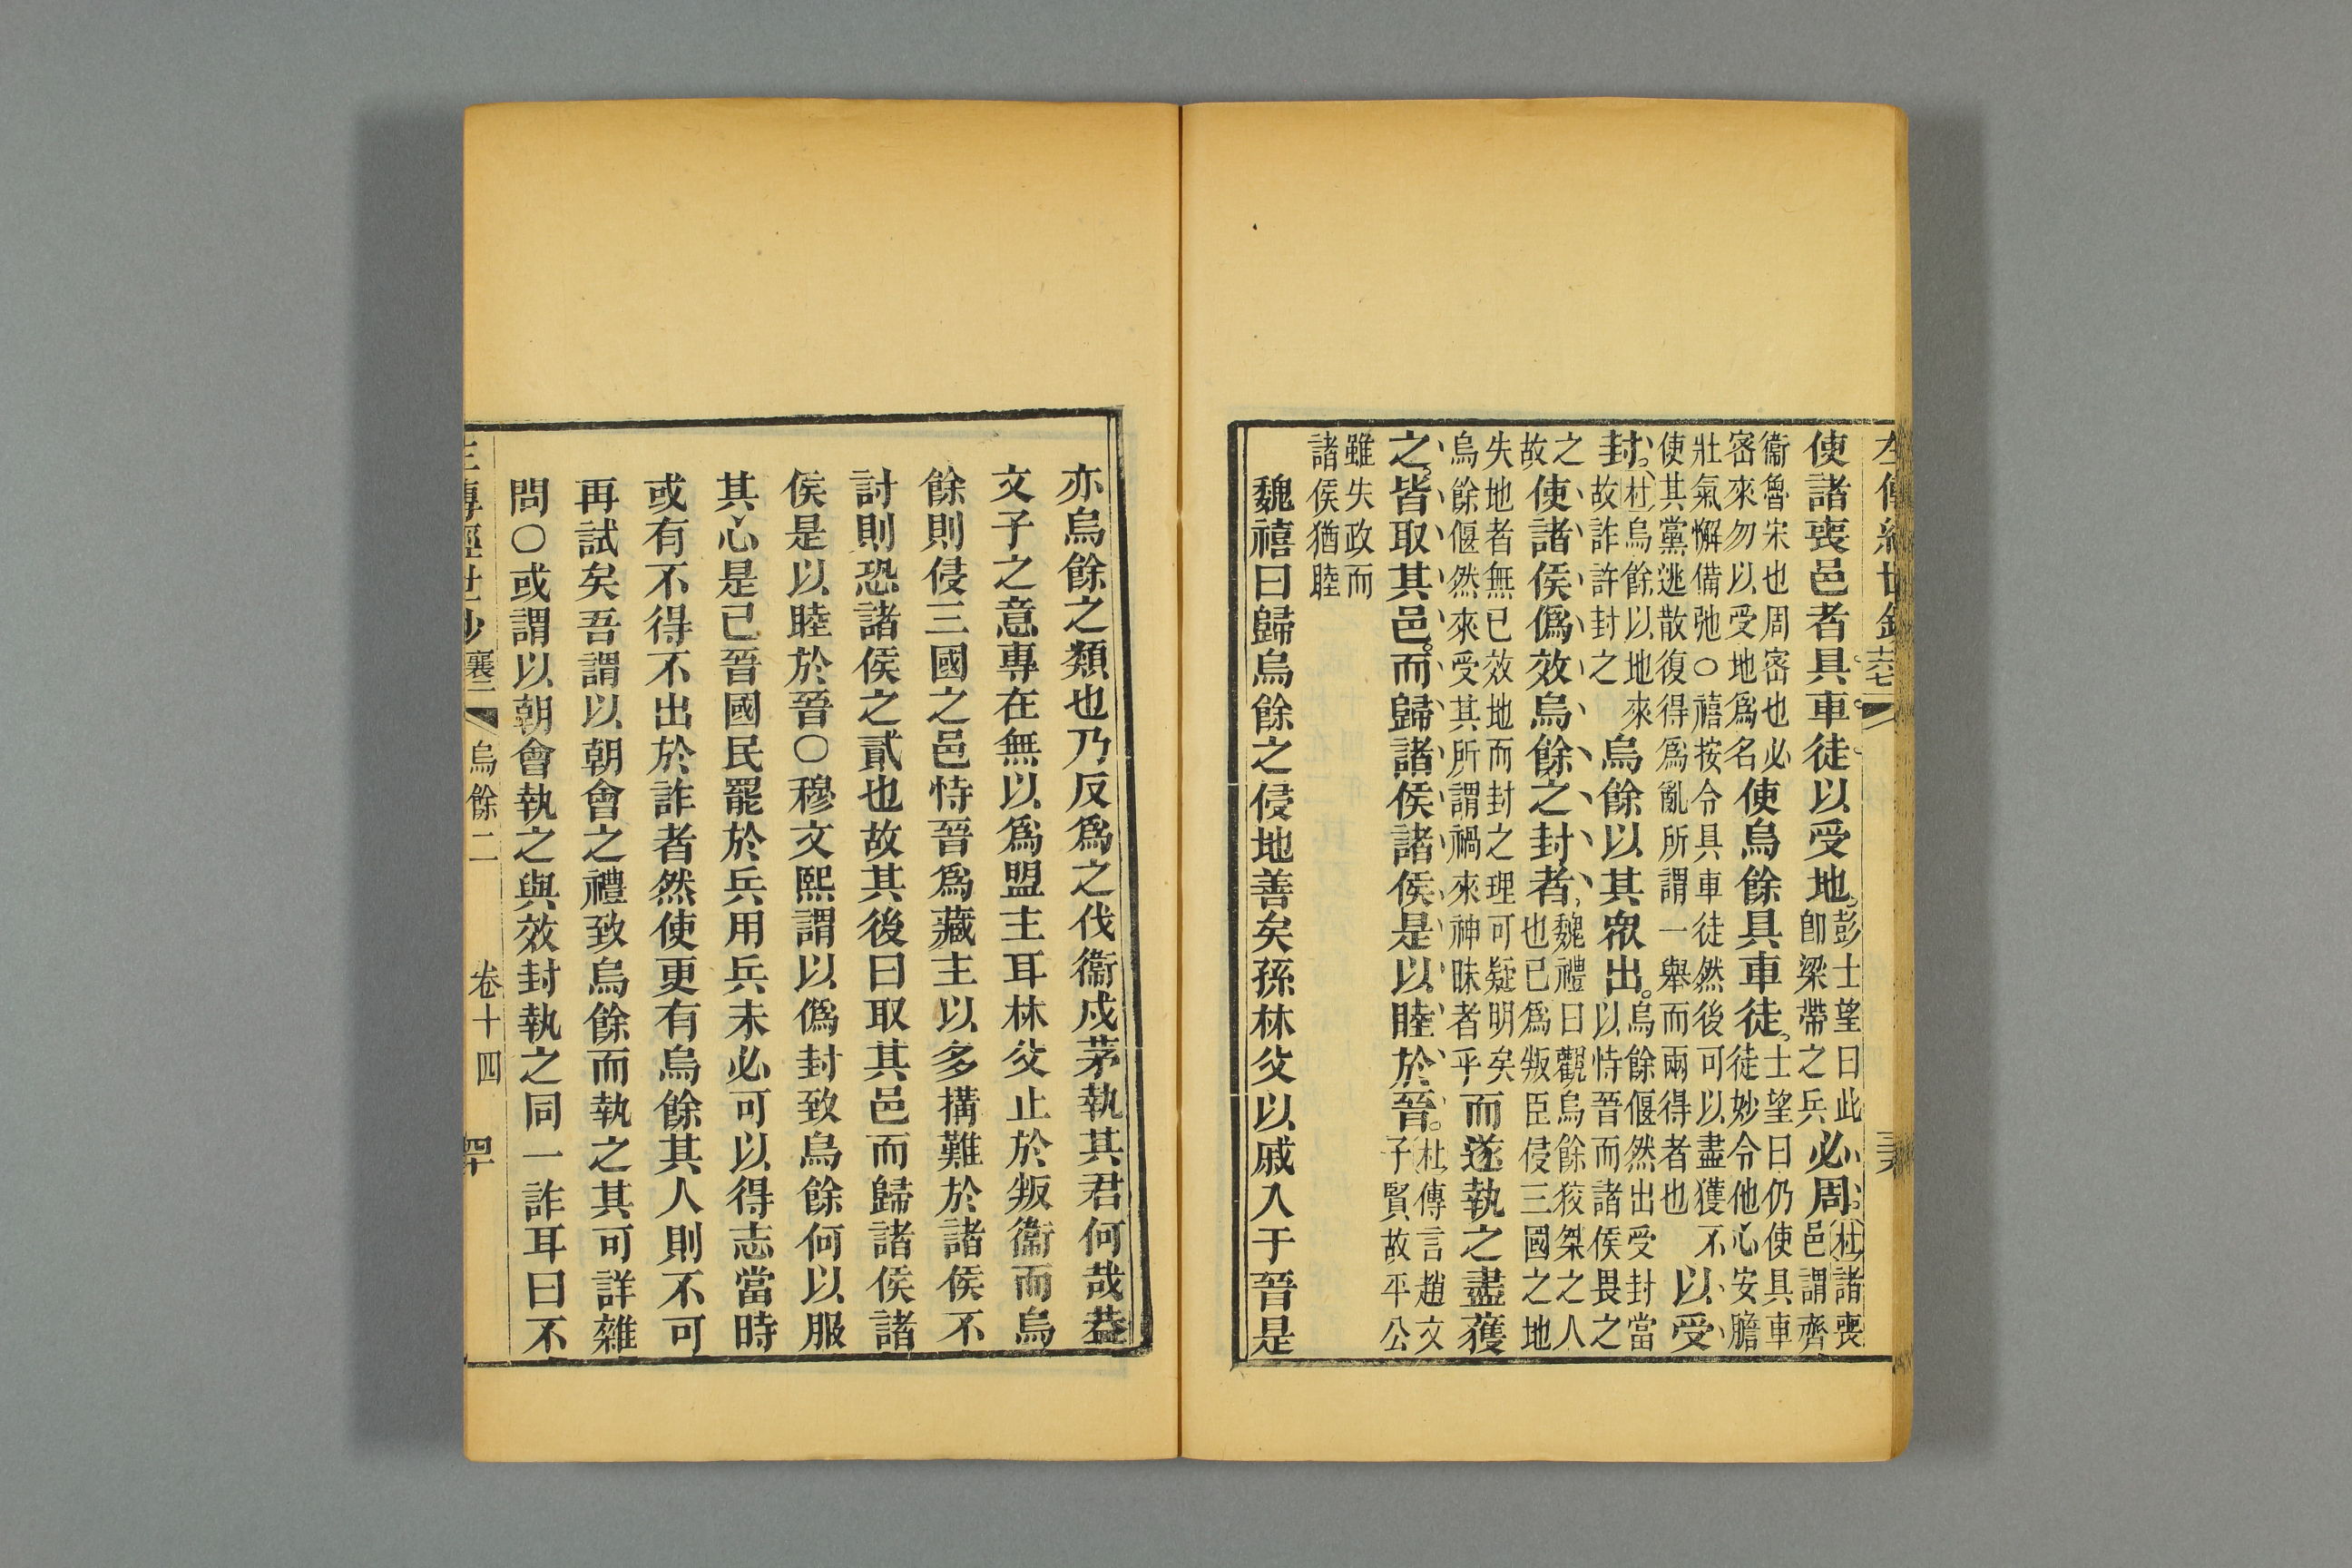 左傳經世鈔
使諸喪邑者具車徒以受地。彭士望曰此卽梁帶之兵必周。杜諸喪邑謂齊
衞魯宋也周密也必密來勿以受地爲名使烏餘具車徒。士望曰仍使具車徒妙令他心安膽
壯氣懈備弛○禧按令具車徒然後可以盡獲不使其黨逃散復得爲亂所謂一舉而兩得者也以受
封。杜烏餘以地來故詐許封之烏餘以其衆出。烏餘偃然出受封當以恃晉而諸侯畏之
之故使諸侯僞效烏餘之封者。魏禮曰觀烏餘狡桀之人也已爲叛臣侵三國之地
失地者無已效地而封之理可疑明矣烏餘偃然來受其所謂禍來神昧者乎而遂執之盡獲
之。皆取其邑。而歸諸侯諸侯是以睦於晉。杜傳言趙文子賢故平公
雖失政而諸侯猶睦
魏禧曰歸烏餘之侵地善矣孫林父以戚入于晉是
亦烏餘之類也乃反爲之伐衞戍茅執其君何哉葢
文子之意專在無以爲盟主耳林父止於叛衞而烏
餘則侵三國之邑恃晉爲藏主以多搆難於諸侯不
討則恐諸侯之貳也故其後曰取其邑而歸諸侯諸
侯是以睦於晉○穆文熙謂以僞封致烏餘何以服
其心是已晉國民罷於兵用兵未必可以得志當時
或有不得不出於詐者然使更有烏餘其人則不可
再試矣吾謂以朝會之禮致烏餘而執之其可詳雜
問○或謂以朝會執之與效封執之同一詐耳曰不
左傳經世鈔 襄二 烏餘二 卷十四 四十